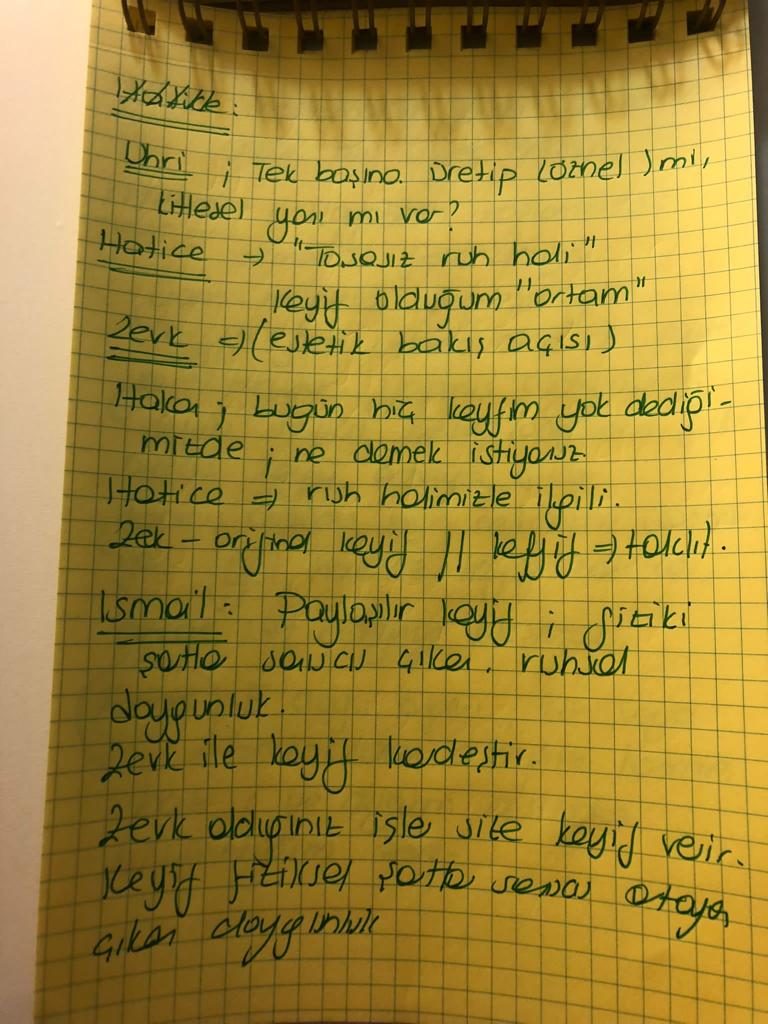 Hatice:
Uhri ; Tek başına üretip (öznel) mi,
kitlesel yanı mı var?
Hatice → "Tasasız ruh hali"
keyif olduğum "ortam"
Zevk ⇒ (estetik bakış açısı)
Hakan ; bugün hiç keyfim yok dediği-
mizde ; ne demek istiyoruz.
Hatice ⇒ ruh halimizle ilgili.
Zevk - orijinal keyif // keyif ⇒ taklit.
İsmail : Paylaşılır keyif ; fiziki
şartlar sonucu çıkan . ruhsal
doygunluk.
Zevk ile keyif kardeştir.
Zevk aldığınız işler size keyif verir.
Keyif fiziksel şartlar sonucu ortaya
çıkan doygunluk